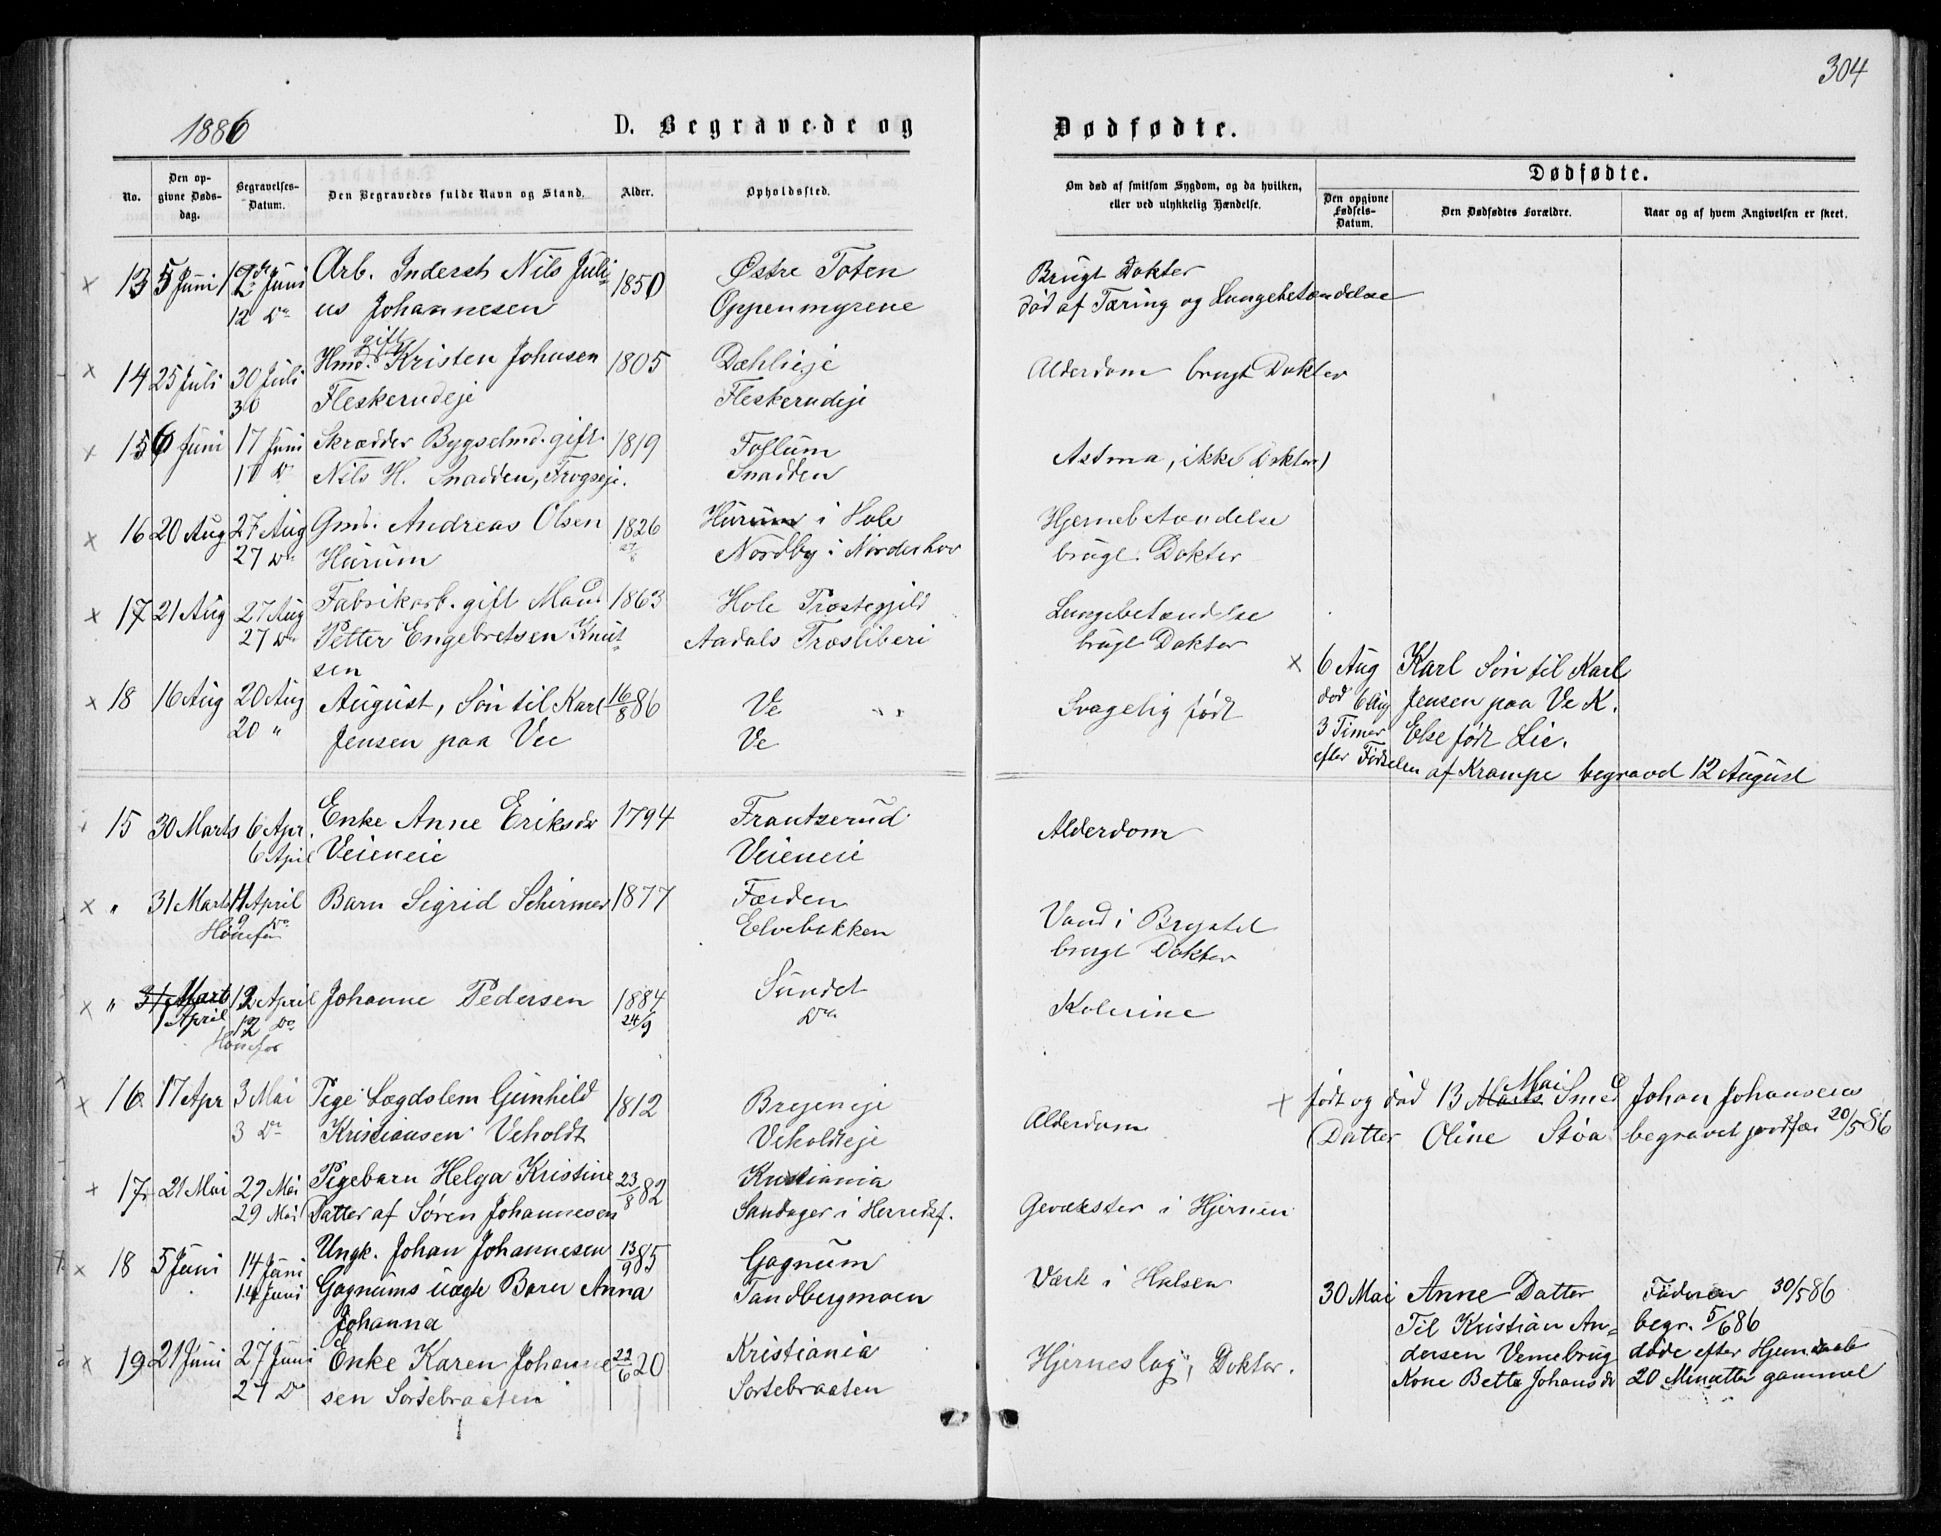 304
1886
D. Begravede og Dødfødte.
No. Den opgivne Dødsdag. Begravelses-Datum. Den Begravedes fulde Navn og Stand. Alder. Opholdssted.
Om død af smitsom Sygdom, og da hvilken, eller ved ulykkelig Hændelse.
Dødfødte.
Den opgivne Fødsels-Datum. Den Dødfødtes Forældre. Naar og af hvem Angivelsen er skeet.
× 13 5 Juni 12 Juni Arb. Inderst Nils Juli- 1850 Østre Toten Brugt Dokter
12 Do us Johannesen Oppenmyrene død af Tæring og Lungebetændelse
gift
× 14 25 Juli 30 Juli Hmd. Kristen Johnsen 1805 Dæhlieje Alderdom brugt Dokter
30 Fleskerudeje Fleskerudeje
× 15 6 Juni 17 Juni Skrædder Bygselmd. gift 1819 Follum Astma, ikke Dokter
17 Do Nils H. Snadden, Frogseje. Snadden
× 16 20 Aug 27 Aug Gmd. Andreas Olsen 1826 Hurum i Hole Hjernebetændelse
27 Do Hurum Nordby i Norderhov brugt Dokter
× 17 21 Aug 27 Aug Fabrikarb. gift Mand 1863 Hole Præstegjeld Lungebetændelse
27 Do Petter Engebretsen Knut- Aadals Træsliberi brugt Dokter
sen
× 6 Aug Karl Søn til Karl
× 18 16 Aug 20 Aug August, Søn til Karl 16/8 86 Ve Svagelig født død 6 Aug Jensen paa Ve K.
20 " Jensen paa Vee Ve 3 Timer Else født Lie.
efter Fødselen af Krampe begravd 12 August
15 30 Marts 6 Apr. Enke Anne Eriksdr 1794 Frantzerud Alderdom
6 April Veieneie Veieneie
× " 31 Marts 11 April Barn Sigrid Schirmer 1877 Færden Vand i Brystet
Hønefos Do Elvebakken brugt Dokter
× " 31 Mart 12 April Johanne Pedersen 1884 Sundet Kolerine
1 April 12 Do 24/9 Do
Hønefos
× 16 17 Apr 3 Mai Pige Lægdslem Gunhild 1812 Bregeneje Alderdom
3 Do Kristiansen Veholdt Veholdteje
× født og død 13 Marts Mai Smed Johan Johansens
Datter Oline Støa begravet jordfæ 20/5 86
× 17 21 Mai 29 Mai Pigebarn Helga Kristine 23/8 82 Kristiania Gevækster i Hjernen
29 Mai Datter af Søren Johannesen Sandager i Herredsf.
× 18 5 Juni 14 Juni Ungk. Johan Johannesen 13/9 85 Gagnum Værk i Halsen
14 Juni Gagnums uægte Barn Anna Tandbergmoen
Johanna
30 Mai Anne Datter Faderen 30/5 86
Til Kristian An- begr. 5/6 86
dersen Vemebrug døde efter Hjemdaab
Kone Betta Johansdr 20 Minutter gammel
× 19 21 Juni 27 Juni Enke Karen Johanne- 22/6 20 Kristiania Hjerneslag, Dokter.
27 Do sen Sortebraaten Sortebraaten